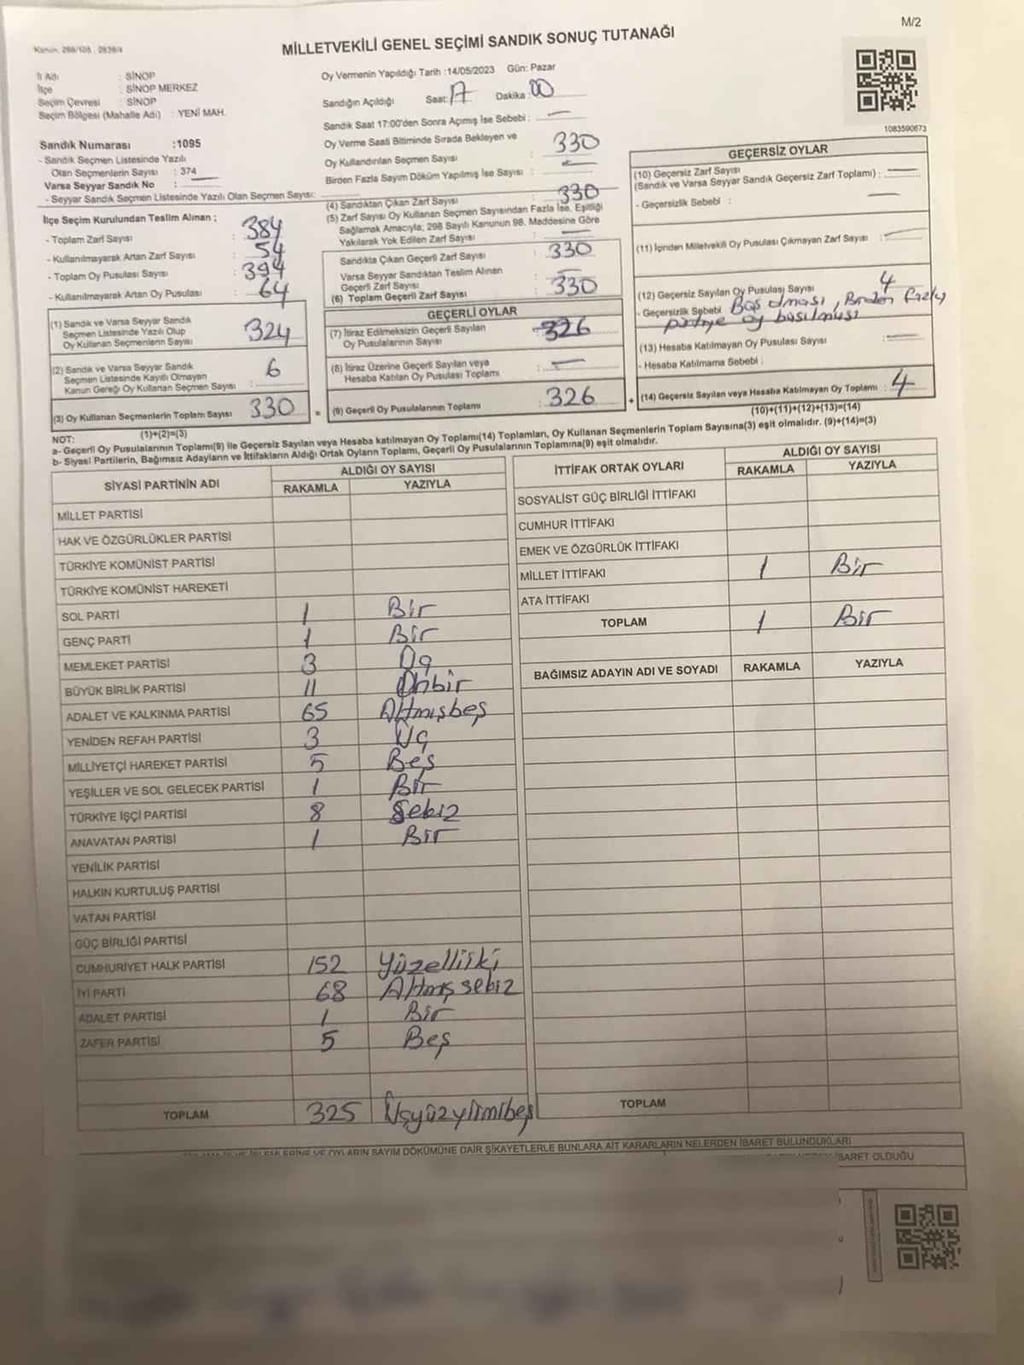 M/2
Kanun: 298/105 - 2839/4
MİLLETVEKİLİ GENEL SEÇİMİ SANDIK SONUÇ TUTANAĞI
İl Adı : SİNOP
İlçe : SİNOP MERKEZ
Seçim Çevresi : SİNOP
Seçim Bölgesi (Mahalle Adı) : YENİ MAH.
Sandık Numarası :1095
- Sandık Seçmen Listesinde Yazılı
Olan Seçmenlerin Sayısı : 374
Varsa Seyyar Sandık No :
- Seyyar Sandık Seçmen Listesinde Yazılı Olan Seçmen Sayısı:
Oy Vermenin Yapıldığı Tarih :14/05/2023 Gün: Pazar
Sandığın Açıldığı Saat: 17 Dakika : 00
Sandık Saat 17:00'den Sonra Açmış İse Sebebi : —
Oy Verme Saati Bitiminde Sırada Bekleyen ve
Oy Kullandırılan Seçmen Sayısı : 330
Birden Fazla Sayım Döküm Yapılmış İse Sayısı : —
1083590673
İlçe Seçim Kurulundan Teslim Alınan ;
- Toplam Zarf Sayısı : 384
- Kullanılmayarak Artan Zarf Sayısı : 54
- Toplam Oy Pusulası Sayısı : 394
- Kullanılmayarak Artan Oy Pusulası : 64
(1) Sandık ve Varsa Seyyar Sandık
Seçmen Listesinde Yazılı Olup
Oy Kullanan Seçmenlerin Sayısı : 324
(2) Sandık ve Varsa Seyyar Sandık
Seçmen Listesinde Kayıtlı Olmayan
Kanun Gereği Oy Kullanan Seçmen Sayısı : 6
(3) Oy Kullanan Seçmenlerin Toplam Sayısı 330
(1)+(2)=(3)
(4) Sandıktan Çıkan Zarf Sayısı : 330
(5) Zarf Sayısı Oy Kullanan Seçmen Sayısından Fazla İse, Eşitliği
Sağlamak Amacıyla, 298 Sayılı Kanunun 98. Maddesine Göre
Yakılarak Yok Edilen Zarf Sayısı : —
Sandıkta Çıkan Geçerli Zarf Sayısı : 330
Varsa Seyyar Sandıktan Teslim Alınan
Geçerli Zarf Sayısı : —
(6) Toplam Geçerli Zarf Sayısı : 330
GEÇERLİ OYLAR
(7) İtiraz Edilmeksizin Geçerli Sayılan
Oy Pusulalarının Sayısı : 326
(8) İtiraz Üzerine Geçerli Sayılan veya
Hesaba Katılan Oy Pusulası Toplamı : —
= (9) Geçerli Oy Pusulalarının Toplamı : 326
GEÇERSİZ OYLAR
(10) Geçersiz Zarf Sayısı
(Sandık ve Varsa Seyyar Sandık Geçersiz Zarf Toplamı) : —
- Geçersizlik Sebebi : —
(11) İçinden Milletvekili Oy Pusulası Çıkmayan Zarf Sayısı : —
(12) Geçersiz Sayılan Oy Pusulası Sayısı : 4
- Geçersizlik Sebebi Boş olması, Birden fazla
partiye oy basılması
(13) Hesaba Katılmayan Oy Pusulası Sayısı : —
- Hesaba Katılmama Sebebi :
+ (14) Geçersiz Sayılan veya Hesaba Katılmayan Oy Toplamı : 4
(10)+(11)+(12)+(13)=(14)
NOT:
a- Geçerli Oy Pusulalarının Toplamı(9) ile Geçersiz Sayılan veya Hesaba katılmayan Oy Toplamı(14) Toplamları, Oy Kullanan Seçmenlerin Toplam Sayısına(3) eşit olmalıdır. (9)+(14)=(3)
b- Siyasi Partilerin, Bağımsız Adayların ve İttifakların Aldığı Ortak Oyların Toplamı, Geçerli Oy Pusulalarının Toplamına(9) eşit olmalıdır.
SİYASİ PARTİNİN ADI ALDIĞI OY SAYISI
RAKAMLA YAZIYLA
MİLLET PARTİSİ
HAK VE ÖZGÜRLÜKLER PARTİSİ
TÜRKİYE KOMÜNİST PARTİSİ
TÜRKİYE KOMÜNİST HAREKETİ
SOL PARTİ 1 Bir
GENÇ PARTİ 1 Bir
MEMLEKET PARTİSİ 3 Üç
BÜYÜK BİRLİK PARTİSİ 11 Onbir
ADALET VE KALKINMA PARTİSİ 65 Altmışbeş
YENİDEN REFAH PARTİSİ 3 Üç
MİLLİYETÇİ HAREKET PARTİSİ 5 Beş
YEŞİLLER VE SOL GELECEK PARTİSİ 1 Bir
TÜRKİYE İŞÇİ PARTİSİ 8 Sekiz
ANAVATAN PARTİSİ 1 Bir
YENİLİK PARTİSİ
HALKIN KURTULUŞ PARTİSİ
VATAN PARTİSİ
GÜÇ BİRLİĞİ PARTİSİ
CUMHURİYET HALK PARTİSİ 152 Yüzelliiki
İYİ PARTİ 68 Altmış sekiz
ADALET PARTİSİ 1 Bir
ZAFER PARTİSİ 5 Beş
TOPLAM 325 Üçyüzyirmibeş
İTTİFAK ORTAK OYLARI ALDIĞI OY SAYISI
RAKAMLA YAZIYLA
SOSYALİST GÜÇ BİRLİĞİ İTTİFAKI
CUMHUR İTTİFAKI
EMEK VE ÖZGÜRLÜK İTTİFAKI
MİLLET İTTİFAKI 1 Bir
ATA İTTİFAKI
TOPLAM 1 Bir
BAĞIMSIZ ADAYIN ADI VE SOYADI RAKAMLA YAZIYLA
TOPLAM
VE OYLARIN SAYIM DÖKÜMÜNE DAİR ŞİKAYETLERLE BUNLARA AİT KARARLARIN NELERDEN İBARET BULUNDUKLARI
İBARET OLDUĞU